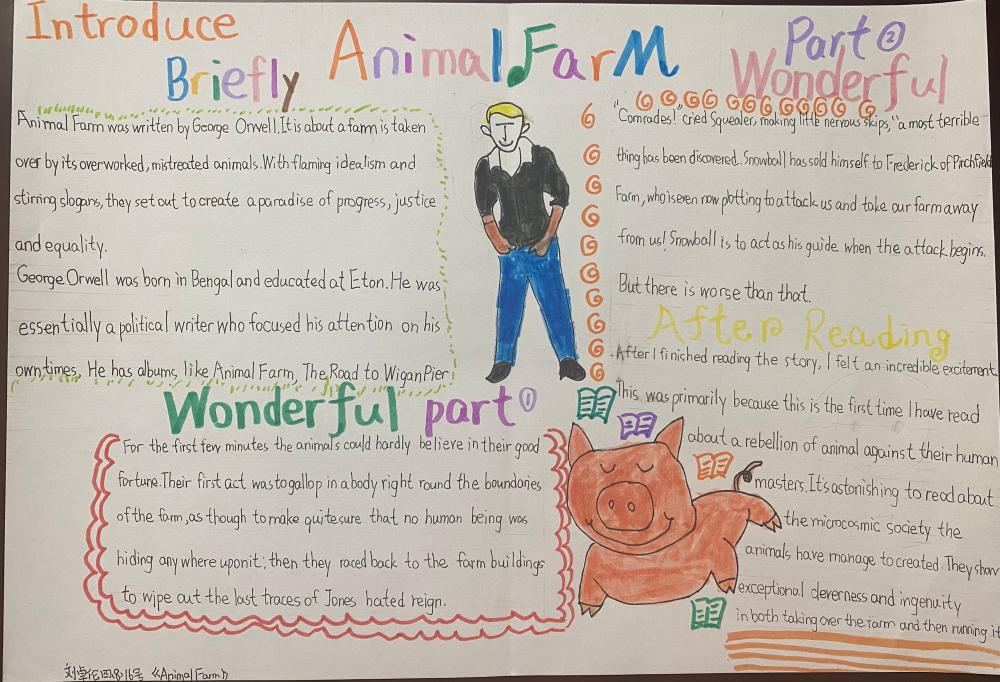 Introduce
Briefly
Animal Farm
Part ②
Wonderful
Animal Farm was written by George Orwell. It is about a farm is taken
over by its overworked, mistreated animals. With flaming idealism and
stirring slogans, they set out to create a paradise of progress, justice
and equality.
George Orwell was born in Bengal and educated at Eton. He was
essentially a political writer who focused his attention on his
own times. He has albums, like Animal Farm, The Road to Wigan Pier
Wonderful part ①
For the first few minutes the animals could hardly believe in their good
fortune. Their first act was to gallop in a body right round the boundaries
of the farm, as though to make quite sure that no human being was
hiding anywhere upon it; then they raced back to the farm buildings
to wipe out the last traces of Jones hated reign.
"Comrades!" cried Squealer, making little nervous skips, "a most terrible
thing has been discovered. Snowball has sold himself to Frederick of Pinchfield
Farm, who is even now plotting to attack us and take our farm away
from us! Snowball is to act as his guide when the attack begins.
But there is worse than that.
After Reading
After I finished reading the story, I felt an incredible excitement.
This was primarily because this is the first time I have read
about a rebellion of animal against their human
masters. It's astonishing to read about
the microcosmic society the
animals have manage to created. They show
exceptional cleverness and ingenuity
in both taking over the farm and then running it
四8 16号 《Animal Farm》